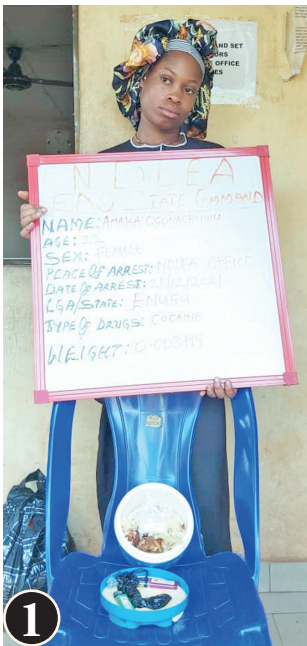 AND SET
ORS
OFFICE
ES
NDLEA
STATE COMMAND
NAME: AMAKA
AGE: 22
SEX: FEMALE
PLACE OF ARREST: NDLEA OFFICE
DATE OF ARREST: 21/12/2021
LGA/STATE: ENUGU
TYPE OF DRUGS: COCAINE
WEIGHT:
1